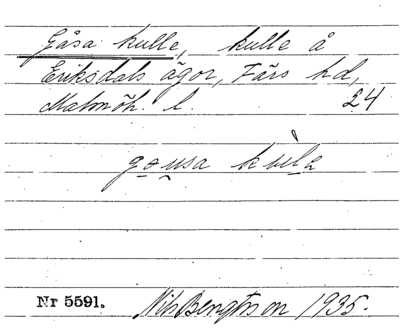 Gåsa kulle, kulle å
Eriksdals ägor, Färs hd,
Malmöh. l. 24
gousa kula
Nr 5591. Nils Bengtsson 1935.